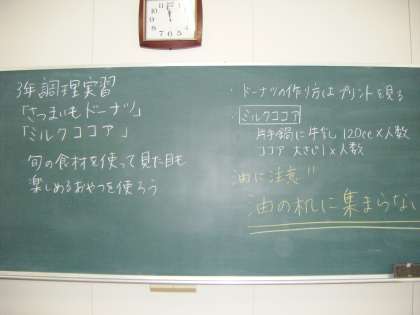 3年調理実習
「さつまいもドーナツ」
「ミルクココア」
旬の食材を使って見た目も
楽しめるおやつを使ろう
・ドーナツの作り方はプリントを見る
・ミルクココア
片手鍋に牛乳 120cc×人数
ココア 大さじ1×人数
油に注意!!
油の机に集まらない